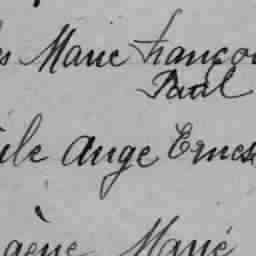 es Marie Françoi
Paul
ile Ange Ernes
gène Marie